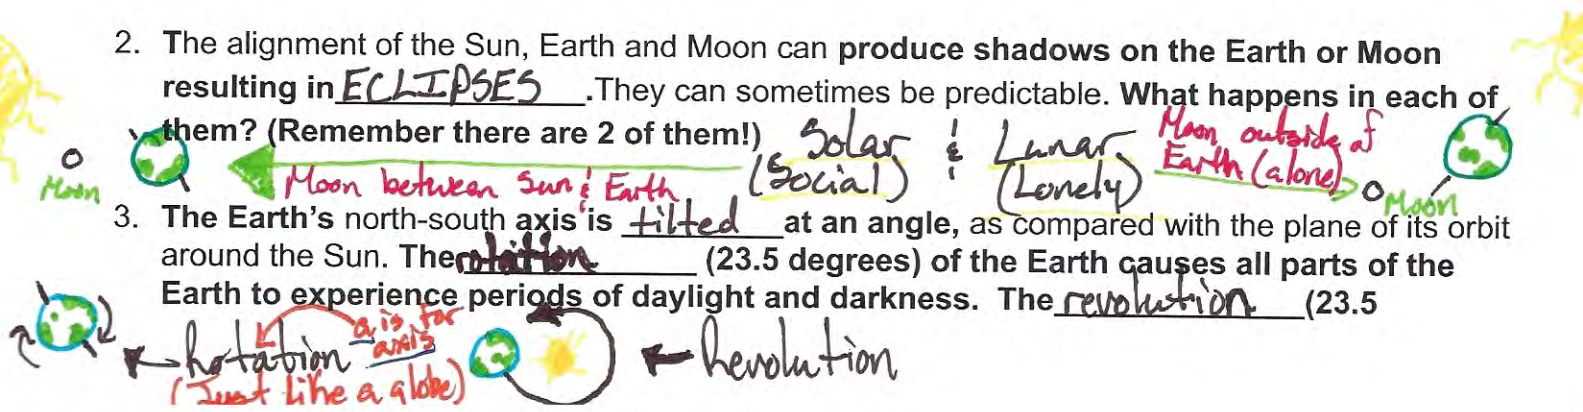 2. The alignment of the Sun, Earth and Moon can produce shadows on the Earth or Moon
resulting in ECLIPSES .They can sometimes be predictable. What happens in each of
them? (Remember there are 2 of them!) Solar & Lunar Moon outside of
Moon Moon between Sun & Earth (Social) (Lonely) Earth (alone) Moon
3. The Earth's north-south axis is tilted at an angle, as compared with the plane of its orbit
around the Sun. The rotation (23.5 degrees) of the Earth causes all parts of the
Earth to experience periods of daylight and darkness. The revolution (23.5
Rotation a is for axis Revolution
(Just like a globe)